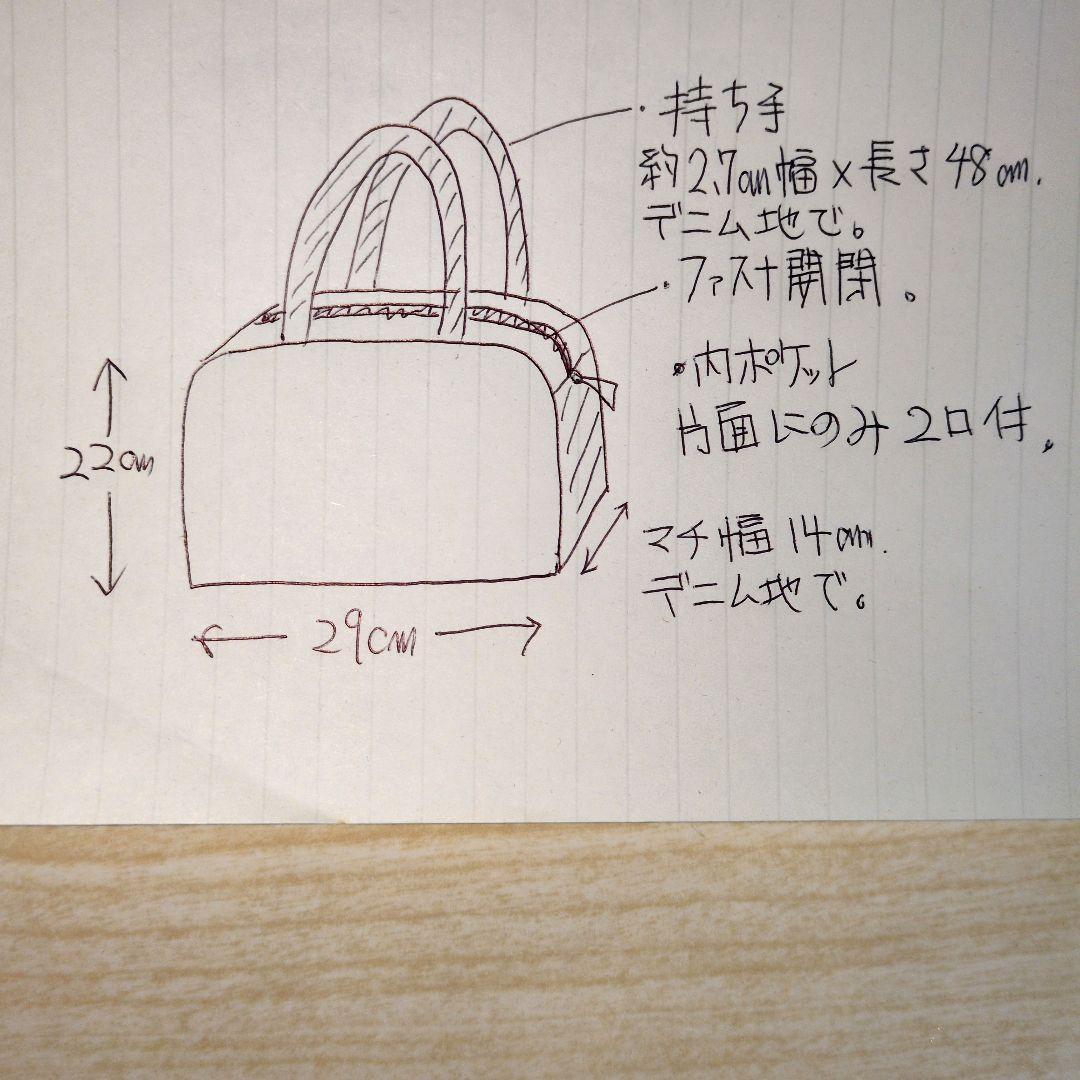 ・持ち手
約2.7cm幅×長さ48cm.
デニム地で。
・ファスナ開閉。
・内ポケット
片面にのみ2口付.
22cm
マチ幅14cm.
デニム地で。
29cm